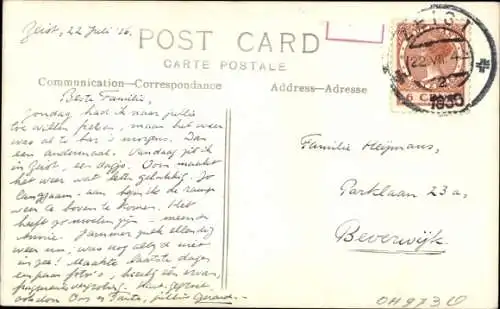 Zeist, 22 Juli '36.
POST CARD
CARTE POSTALE
Communication—Correspondance
Address—Adresse
ZEIST
22 VII
6 CENT
Beste Familie,
Zondag had ik naar jullie
toe willen maar het weer
was al te bar 's morgens. Dan
een andermaal. Vandaag zit ik
in Zeist, een dagje. Oom maakt
het weer wat beter gelukkig. Zo
langzaam aan de ramp
weer te boven te komen. Het
heeft zo moeten zijn - meent
Annie. Jammer ellendig
weer nu. was nog altijd niet
in zee! Maakte laatste dagen
een paar foto's, hierbij één ervan,
vergroting. Hart. gegroet,
ook door Oom en Tante, jullie Gerard.
Familie Heijmans,
Parklaan 23a,
Beverwijk.
OH973